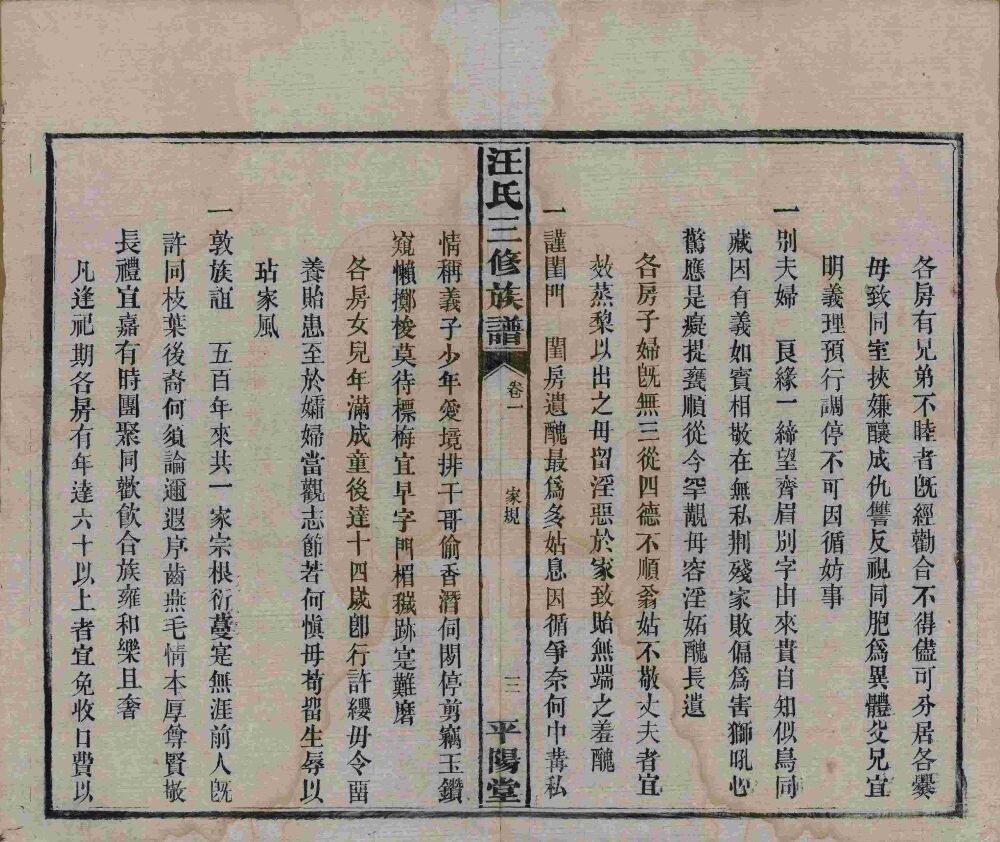 各房有兄弟不睦者旣經勸合不得儘可分居各爨
毋致同室挾嫌釀成仇讐反視同胞爲異體父兄宜
明義理預行調停不可因循妨事
一别夫婦　良緣一締望齊眉别字由來貴自知似鳥同
藏因有義如賓相敬在無私荆殘家敗偏爲害獅吼心
驚應是癡提甕順從今罕覯毋容淫妬醜長遺
各房子婦旣無三從四德不順翁姑不敬丈夫者宜
效蒸黎以出之毋留淫惡於家致貽無端之羞醜
一謹閨門　閨房遺醜最爲多姑息因循爭奈何中冓私
汪氏三修族譜
卷一
家規
三
平陽堂
情稱義子少年愛境排干哥偷香潛伺閑停剪竊玉鑽
窺懶擲梭莫待摽梅宜早字門楣穢跡寔難磨
各房女兒年滿成童後達十四歲卽行許纓毋令畱
養貽患至於孀婦當觀志節若何愼毋苟畱生辱以
玷家風
一敦族誼　五百年來共一家宗根衍蔓寔無涯前人旣
許同枝葉後裔何須論邇遐序齒燕毛情本厚尊賢敬
長禮宜嘉有時團聚同歡飮合族雍和樂且奢
凡逢祀期各房有年達六十以上者宜免收日費以